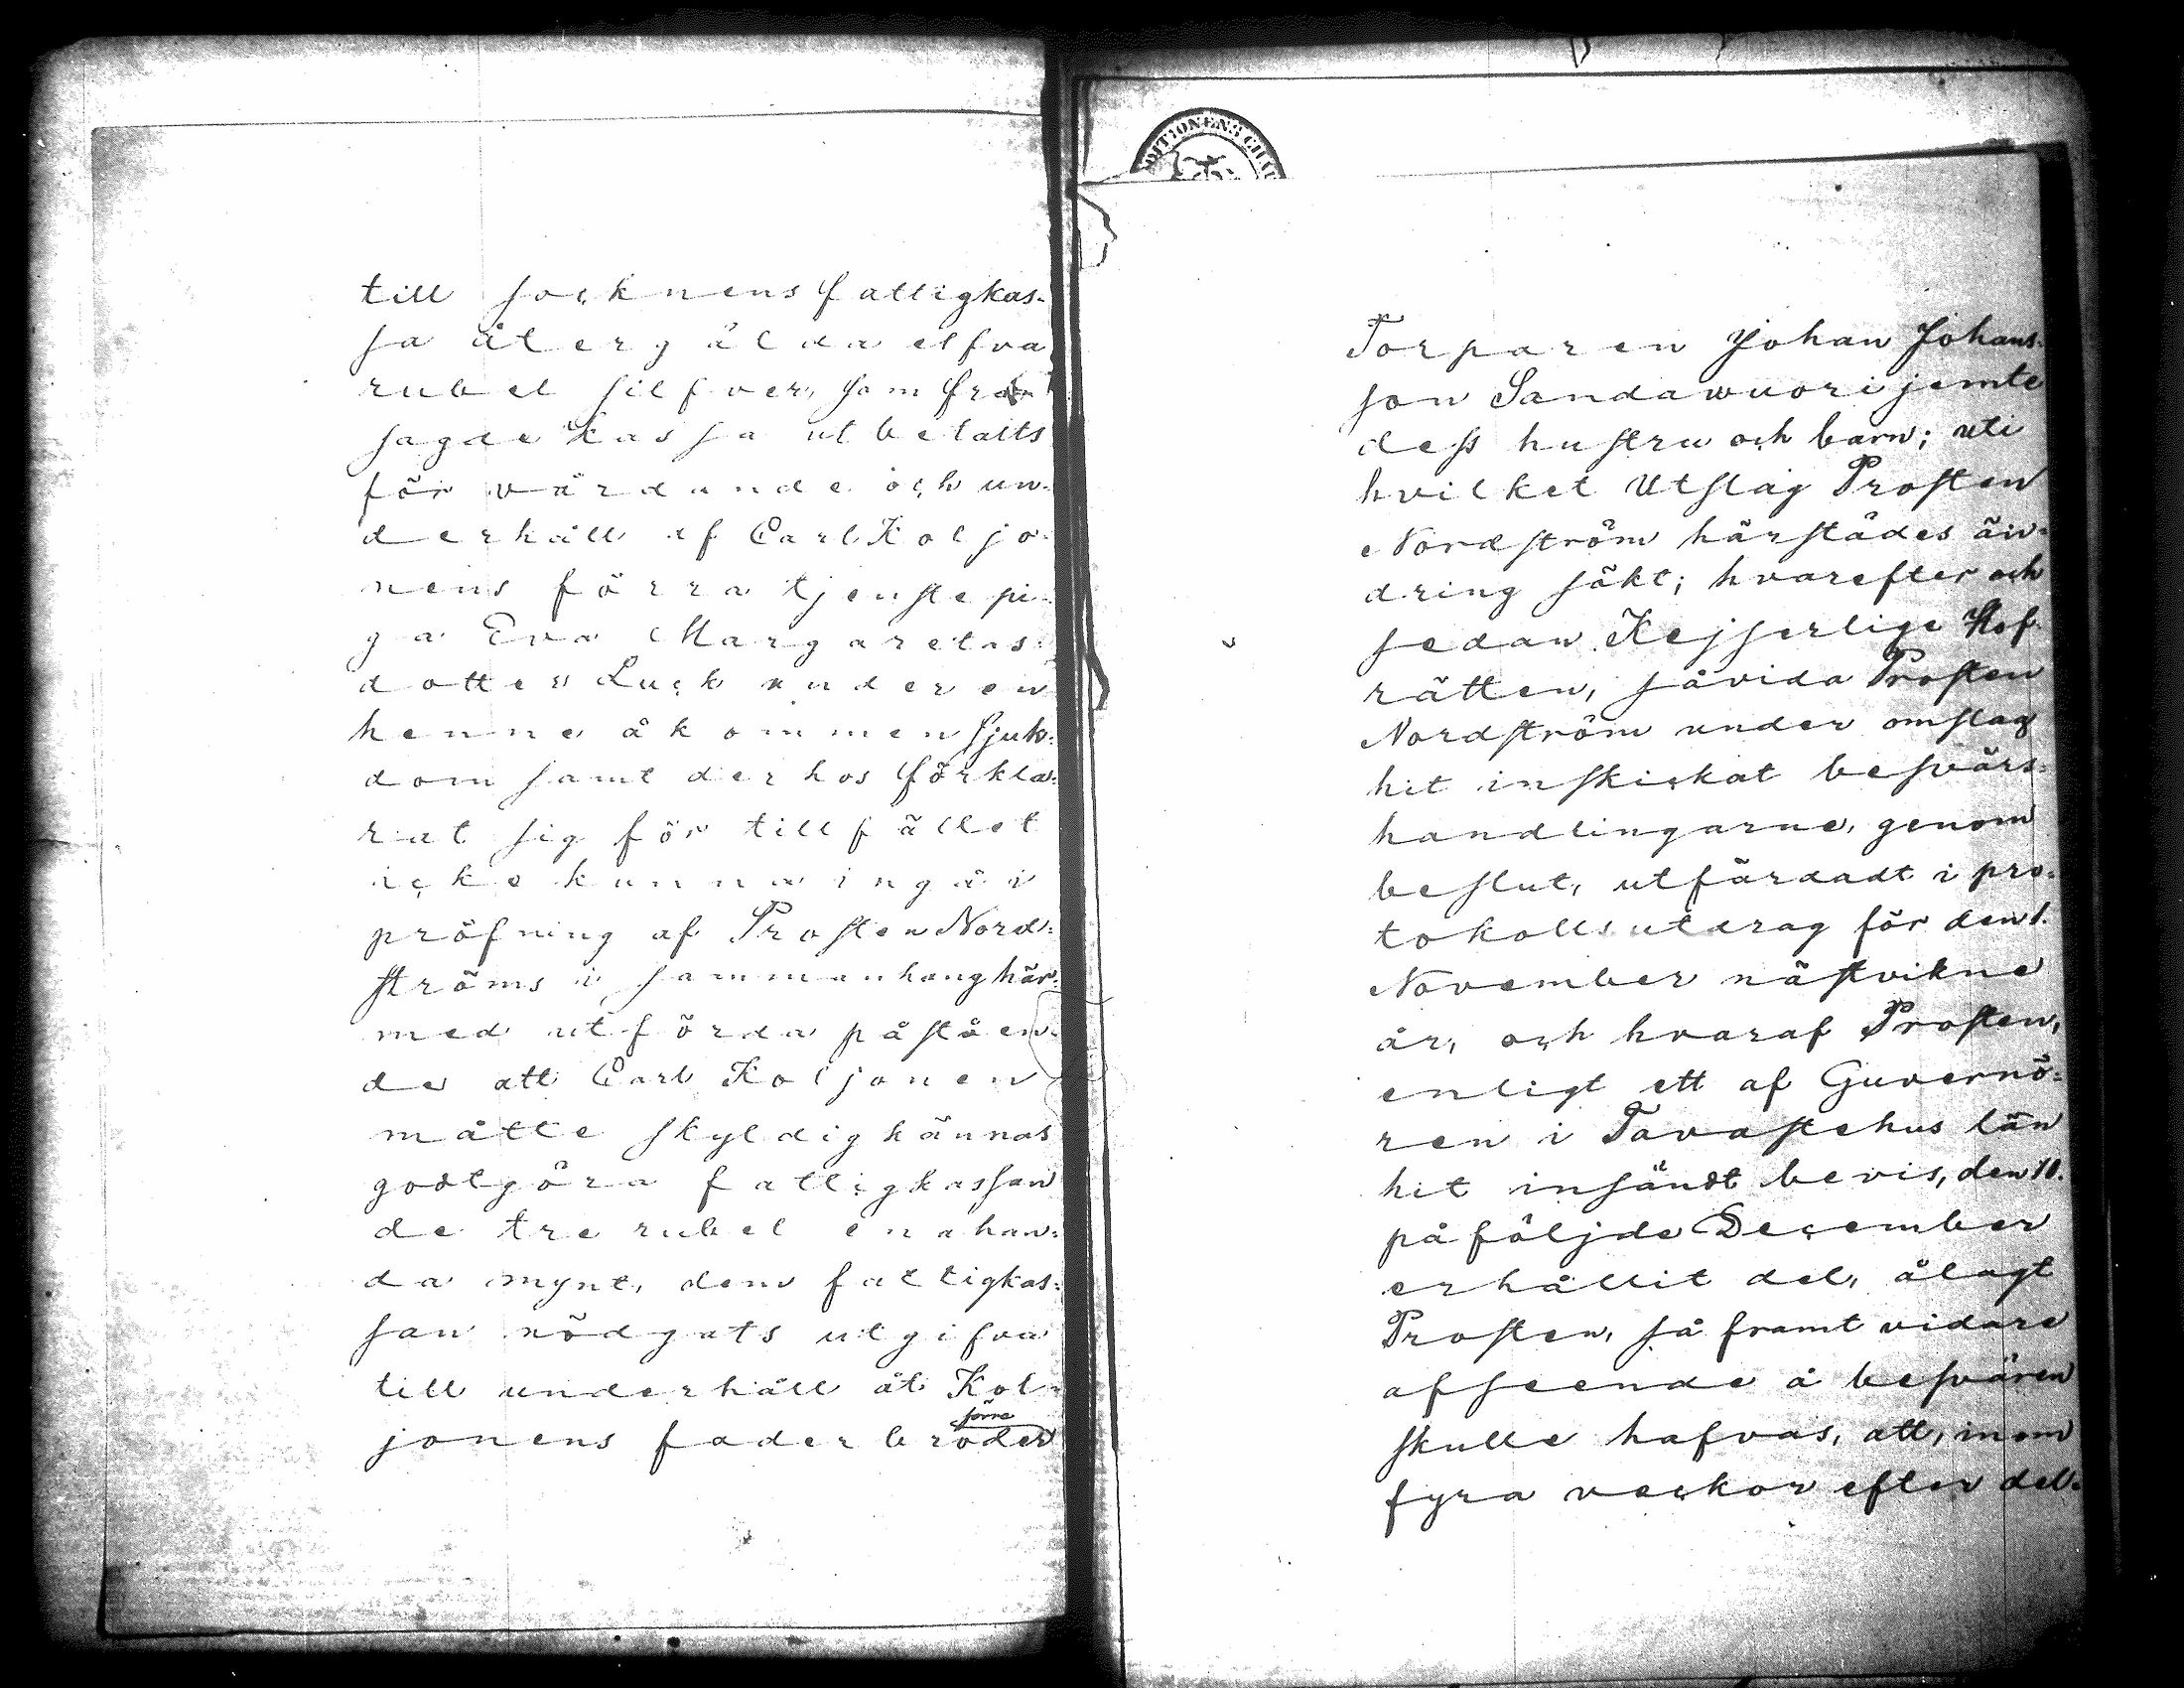 till socknens fattigkas-
sa återgälda elfva
rubel silfver, som från
sagde kassa utbetalts
för vårdande och un-
derhåll af Carl Koljo-
nens förra tjenstepi-
ga Eva Margaretas-
dotter Luck under en
henne åkommen sjuk-
dom samt derhos förkla-
rat sig för tillfället
icke kunna ingå i
pröfning af Prosten Nord-
ströms i sammanhang här-
med utförda påståen-
de att Carl Koljonen
måtte skyldig kännas
godtgöra fattigkassan
de tre rubel enahan-
da mynt, dem fattigkas-
san nödgats utgifva
till underhåll åt Kol-
jonens faderbroder
förre
DITIONENS CHA
Torparen Johan Johans-
son Sandawuori jemte
dess hustru och barn; uti
hvilket Utslag Prosten
Nordström härstädes än-
dring sökt; hvarefter och
sedan Kejserlige Hof-
rätten, såvida Prosten
Nordström under omslag
hit inskickat besvärs-
handlingarne, genom
beslut, utfärdadt i pro-
tokollsutdrag för den 1.
November nästvikne
år, och hvaraf Prosten,
enligt ett af Guvernö-
ren i Tavastehus län
hit insändt bevis, den 10.
påföljde December
erhållit del, ålagt
Prosten, så framt vidare
afseende å besvären
skulle hafvas, att, inom
fyra veckor efter del-